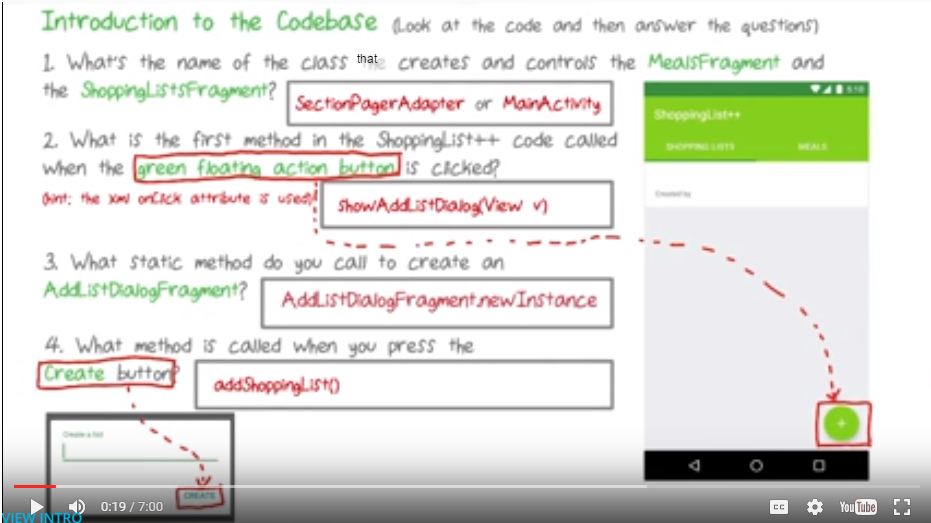 Introduction to the Codebase (Look at the code and then answer the questions)
1. What's the name of the class that creates and controls the MealsFragment and
the ShoppingListsFragment?
SectionPagerAdapter or MainActivity
2. What is the first method in the ShoppingList++ code called
when the green floating action button is clicked?
(hint: the xml onClick attribute is used)
showAddListDialog(View v)
3. What static method do you call to create an
AddListDialogFragment?
AddListDialogFragment.newInstance
4. What method is called when you press the
Create button?
addShoppingList()
5:10
ShoppingList++
SHOPPING LISTS MEALS
Created by
+
Create a list
CREATE
0:19 / 7:00
CC
YouTube
VIEW INTRO